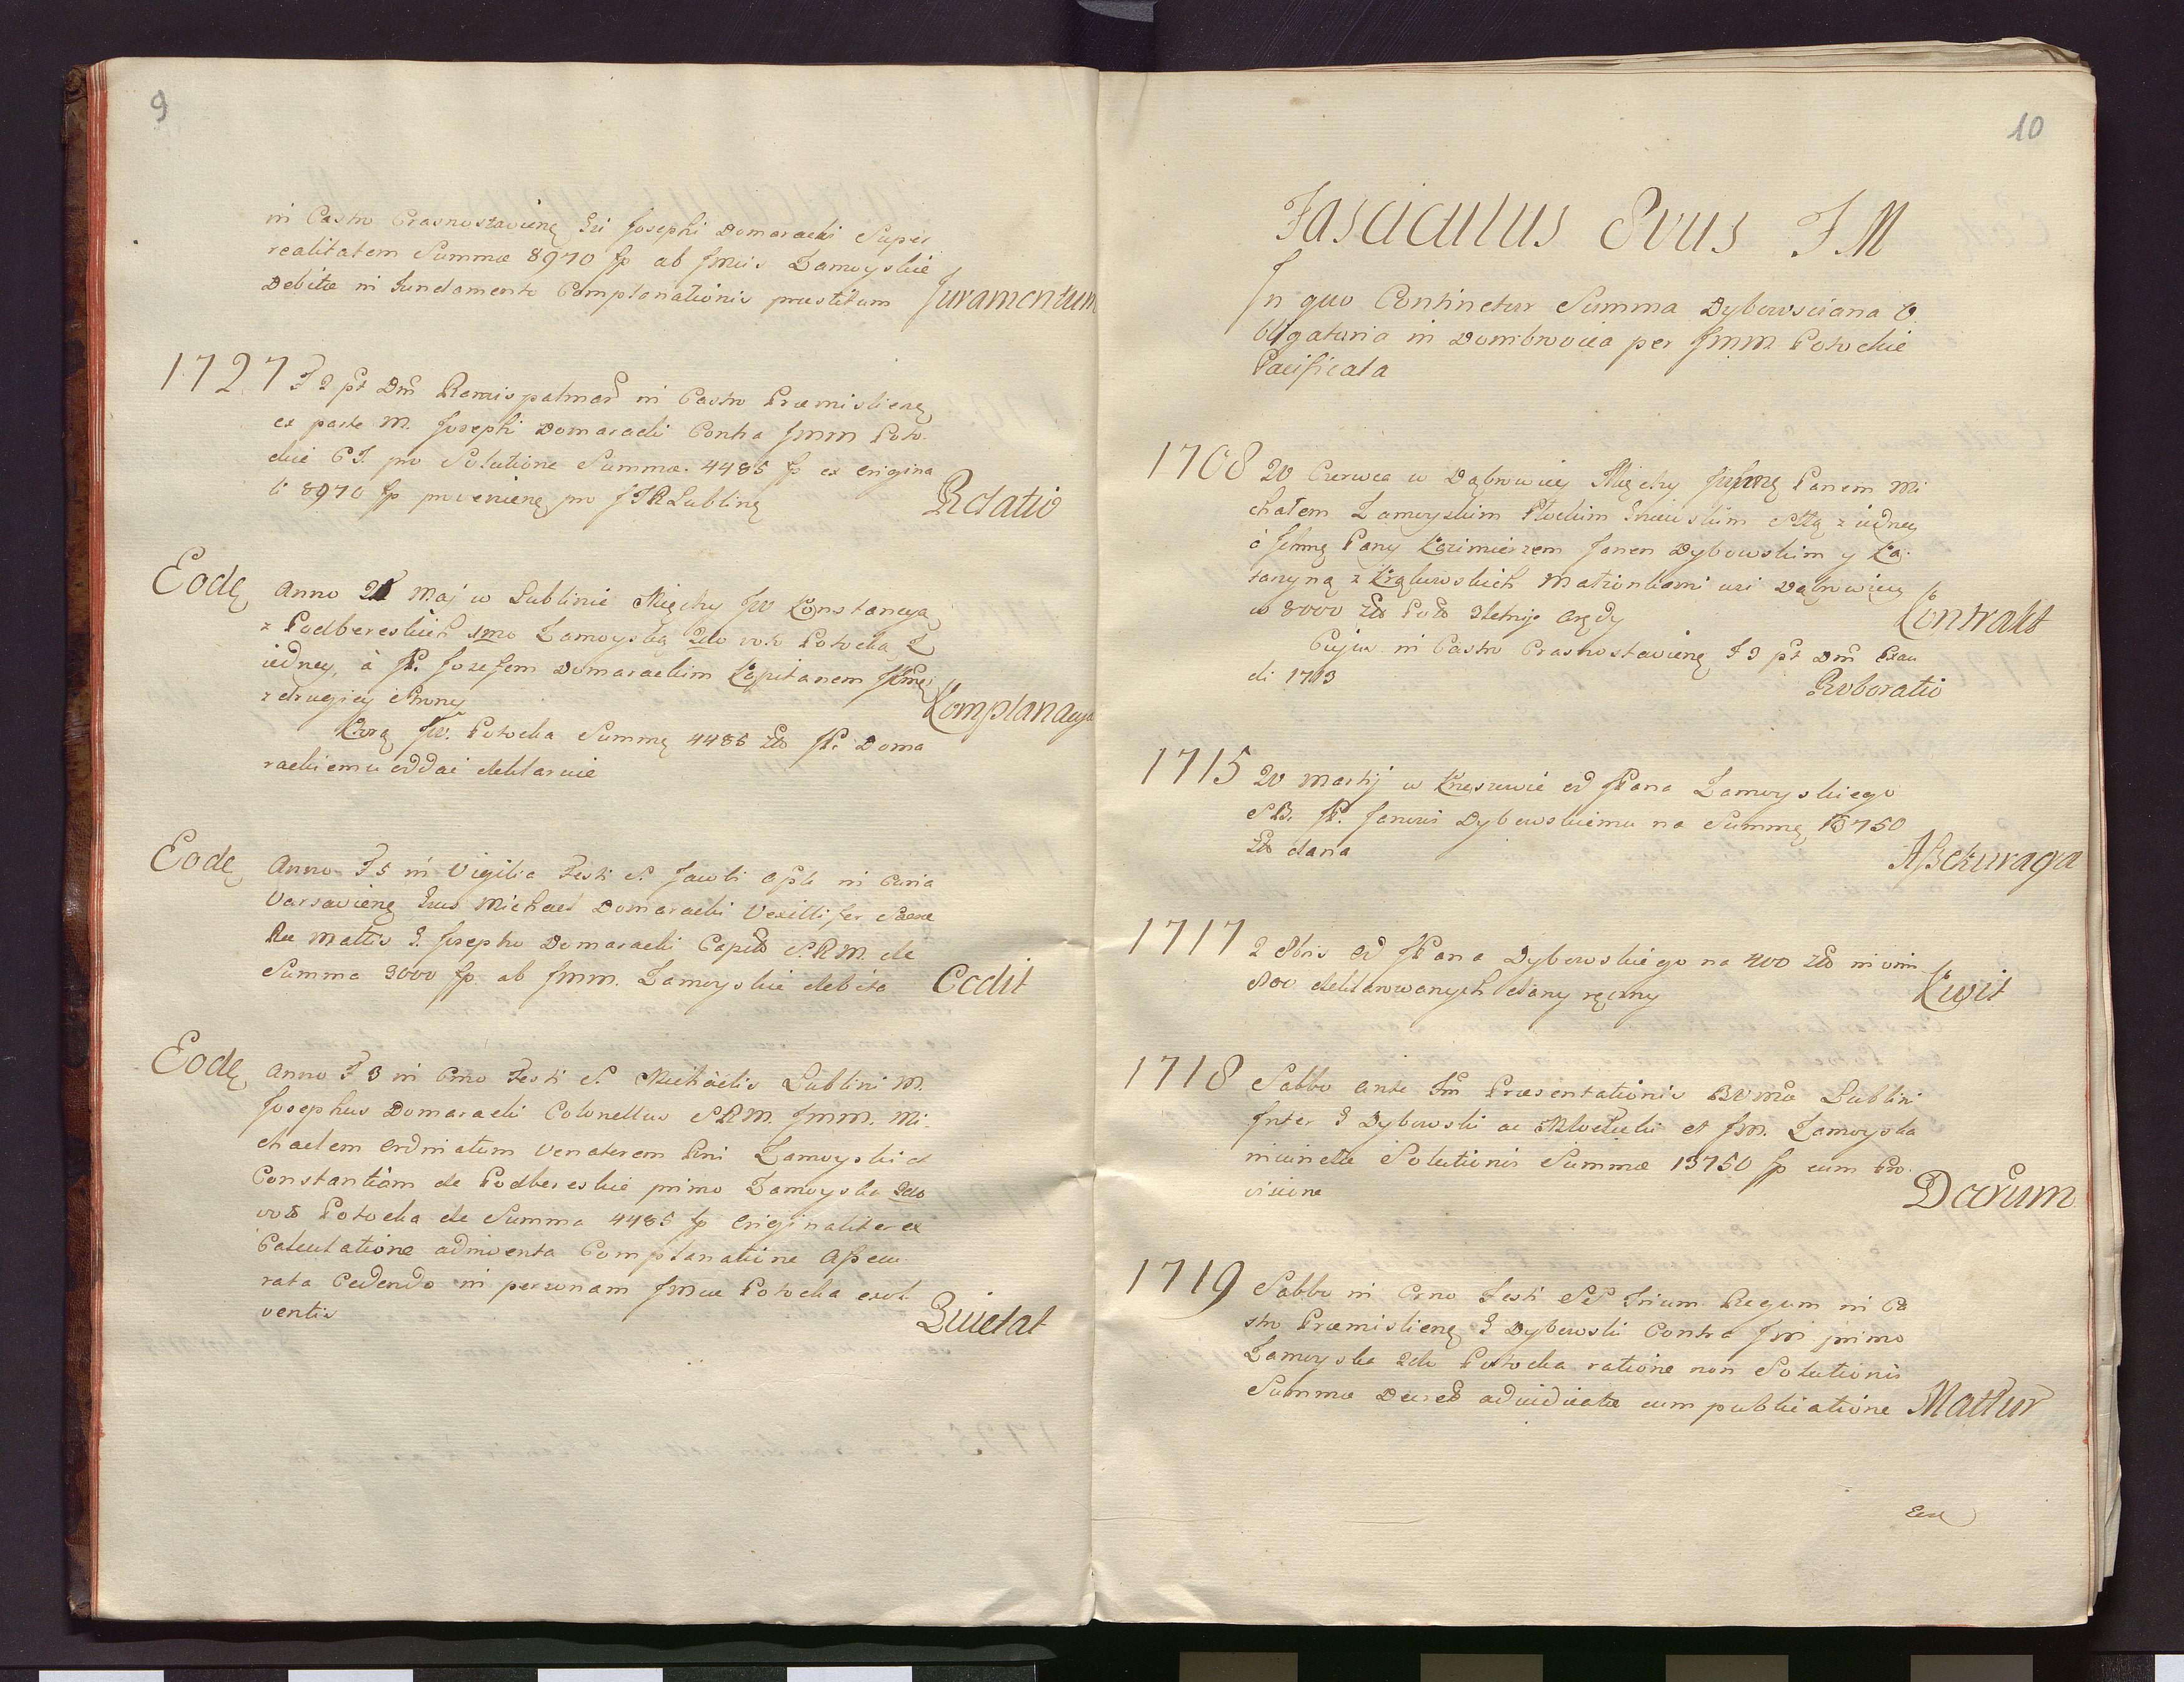 9
in Castro Crasnostaviens Gsi Josephi Domaracki Super
realitatem Summæ 8970 fp ab Jmmis Zamoyskie
Debitæ in fundamento Complanationis præstitum Juramentum
1727 F 2 pt Dm Ramispalmar in Castro Præmisliens
ex parte M. Josephi Domaracki Contra Jmm Poto
ckie CJ. pro Solutione Summæ 4485 fp ex origina
li 8970 fp proveniens pro JTRLublins Rclatio
Eode Anno 21 Maj w Lublinie Między Jw Konstancyą
z Podbereskich 1mo Zamoyską 2do voto Potocką Z
iedney, à JP. Josefem Domarackim Kapitanem JKmci
z drugiey strony Komplanacya
Którą Jw. Potocka Summę 4485 zło JP. Doma
rackiemu oddać deklaruie
Eode Anno F 5 in Vigilia Festi S. Jacobi Apli in Curia
Varsaviens Gnus Michael Domaracki Vexillifer Sacræ
Ræ Mattis G. Josepho Domaracki Capito S.R.M. de
Summa 3000 fp. ab Jmm. Zamoyskie debita Ccdit
Eode Anno F 3 in Crno Festi S. Michaelis Lublini M.
Josephus Domaracki Colonellus SRM. Jmm. Mi
chaelem Ordinatum Venatorem Rni Zamoyski et
Constantiam de Podbereskie primo Zamoyska 2do
voto Potocka de Summa 4485 fp Originaliter ex
Calculatione adinventa Complanatione Assecu
rata Cedendo in personam Jmmæ Potocka exol
ventis Quietat
10
Fasciculus 8vus F M
In quo Continetur Summa Dybowsciana O
bligatoria in Dombrowica per Jmm Potockie
Pacificata
1708 20 Czerwca w Dąbrowicy Między Panem Mi
chałem Zamoyskim Płockim Gniewskim Sttą z iedney
à Jmmę Pany Kazimierzem Janem Dybowskim y Ka
tarzyną z Małżonkami wsi Dąbrowicy
w 8000 zło Polo 3letniję Arędy Kontrakt
Cujus in Castro Crasnostaviens F 3 pt Dm Exau
di 1713 Roboratio
1715 20 Martij w Krzeszowie od JPana Zamoyskiego
S B. JP. Janowi Dybowskiemu na Summę 13750
zło dana Assekuracya
1717 2 8bris od JPana Dybowskiego na 400 zło in vim
800 deklarowanych dany ręczny Kwit
1718 Sabbo ante Fm Præsentationis BVMæ Lublini
Inter G Dybowski ac et Jm. Zamoyska
iniunctæ Solutionis Summæ 13750 fp cum Pro
visione Dcrum
1719 Sabbo in Crno Festi SS Trium Regum in Ca
stro Præmisliens G Dybowski Contra Jm primo
Zamoyska 2do Potocka ratione non Solutionis
Summæ Decreto adiudicatæ cum publicatione Mattur